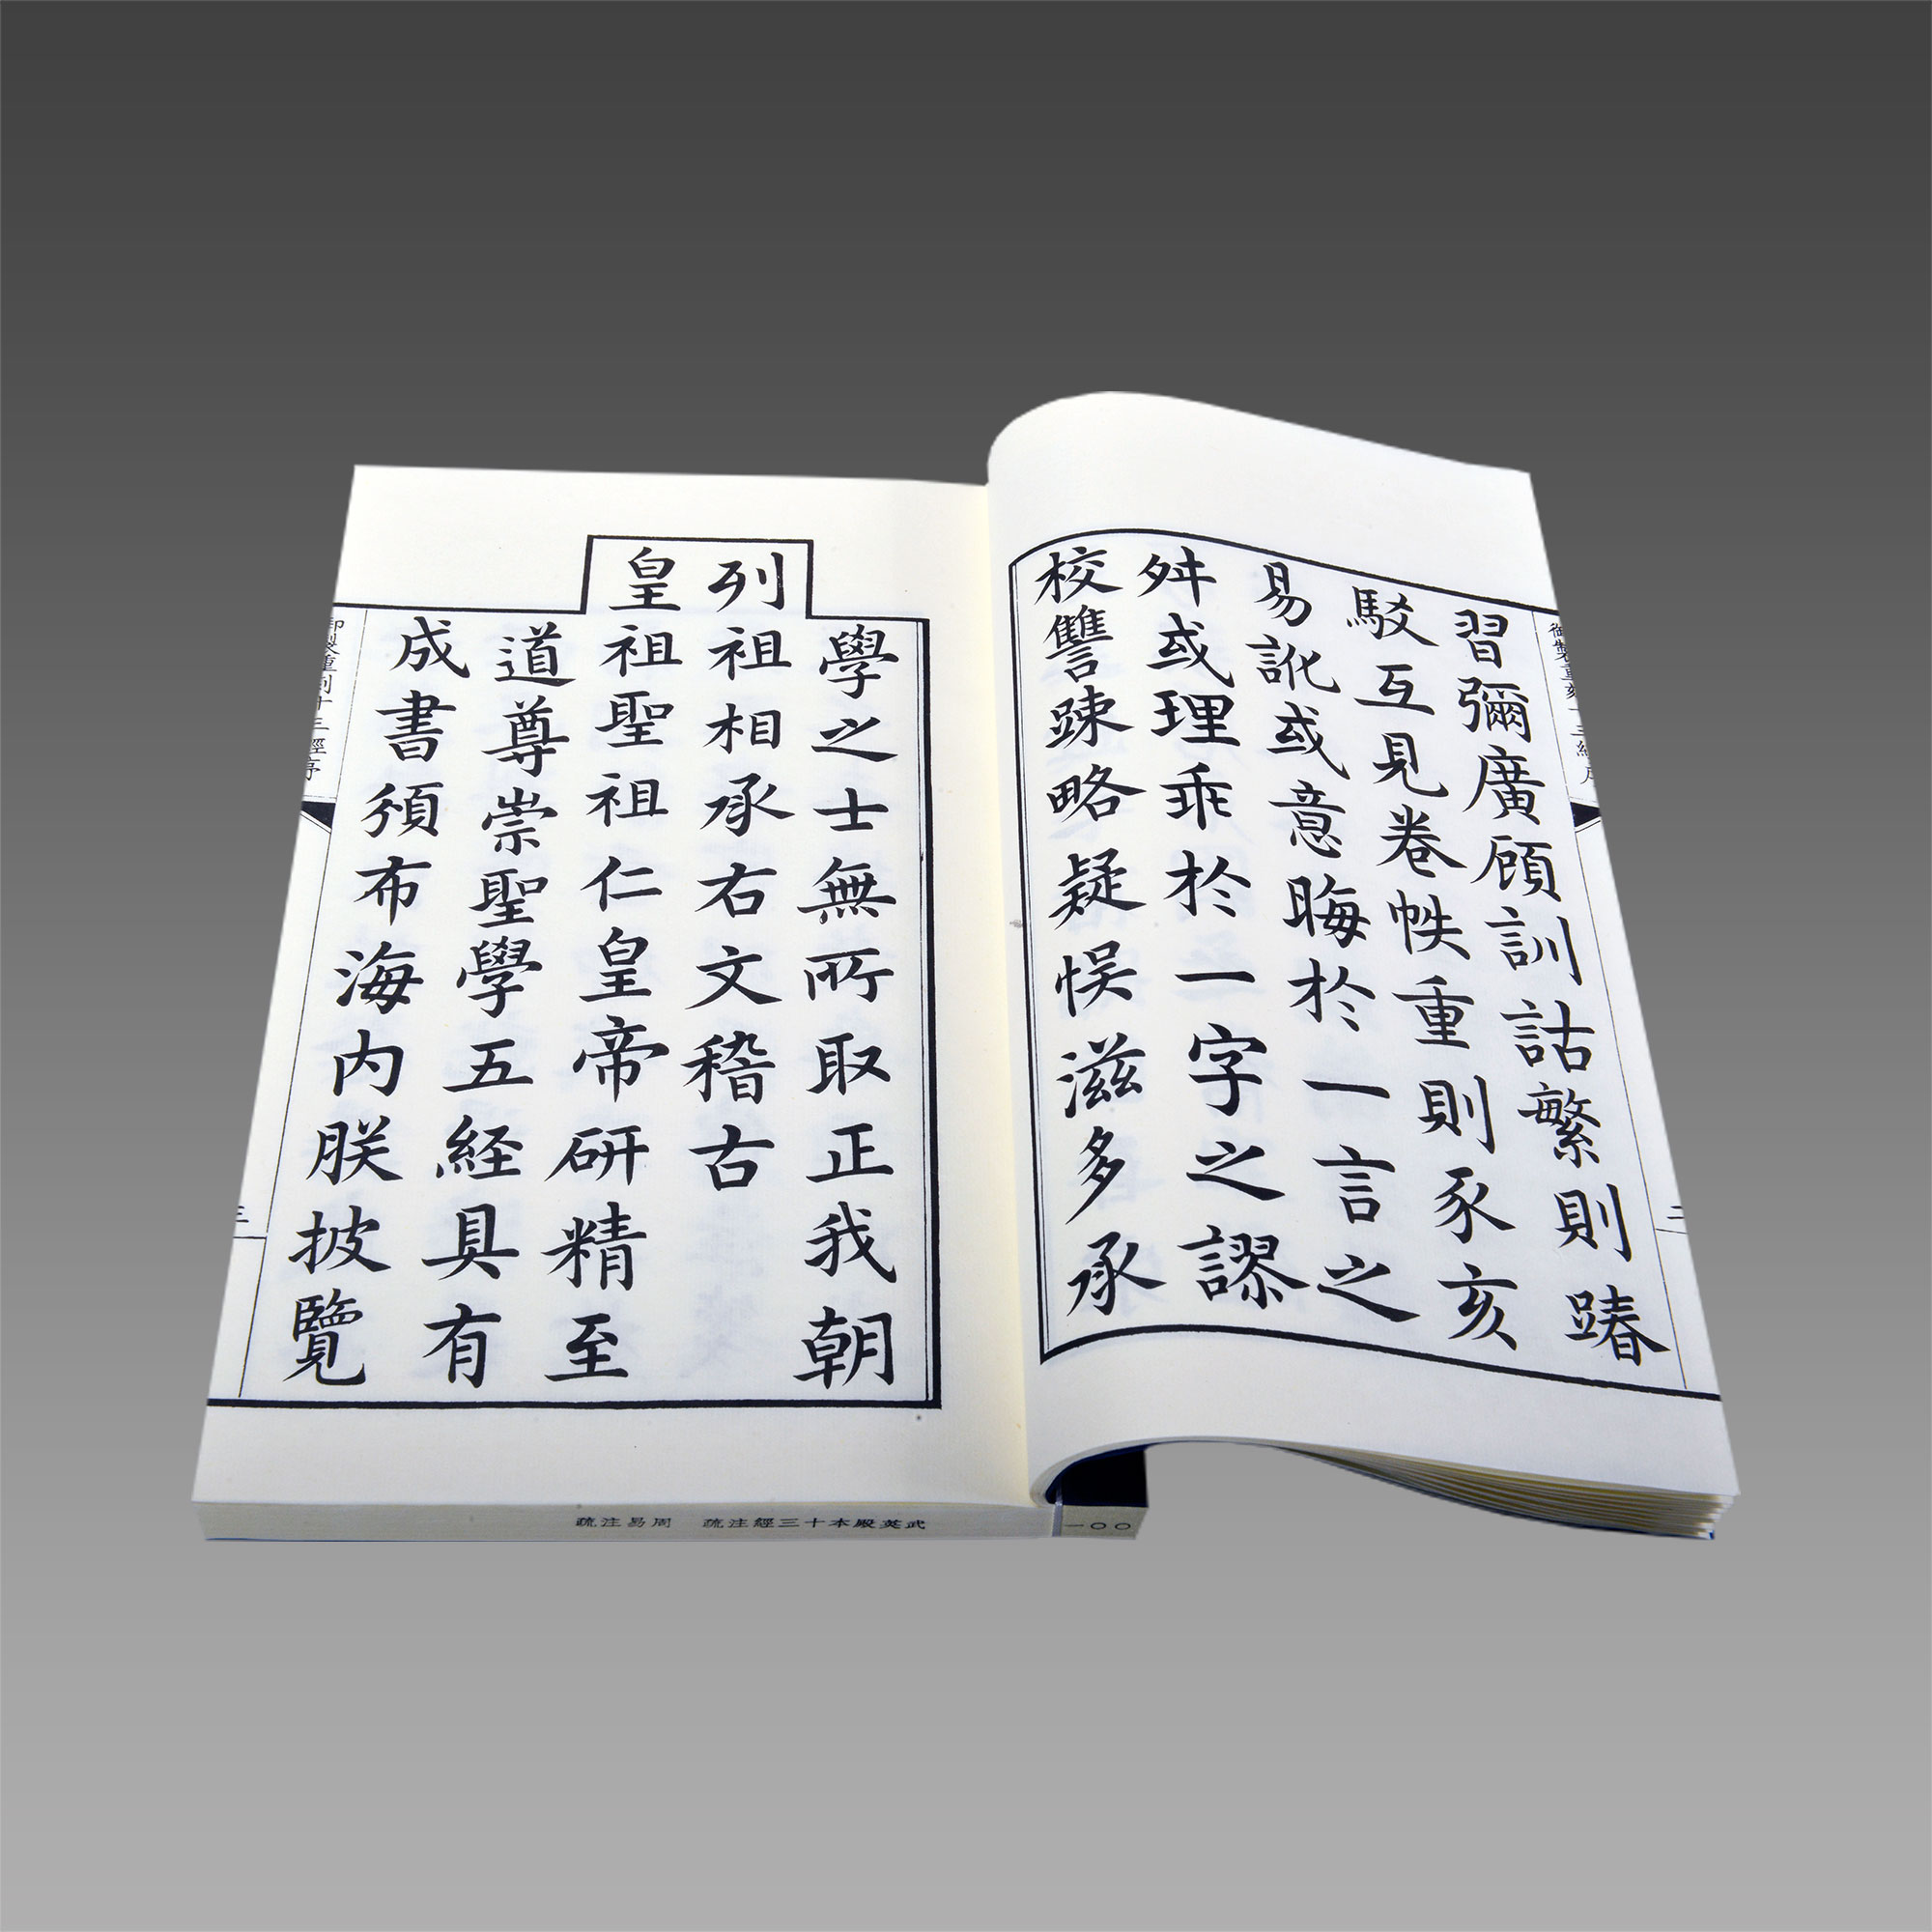 習彌廣顧訓詁繁則踳
駁互見卷帙重則豕亥
易訛或意晦於一言之
舛或理乖於一字之謬
校讐踈略疑悞滋多承
學之士無所取正我朝
列祖相承右文稽古
皇祖聖祖仁皇帝研精至
道尊崇聖學五経具有
成書頒布海内朕披覽
三
武英殿本十三經注疏 周易注疏
一〇〇